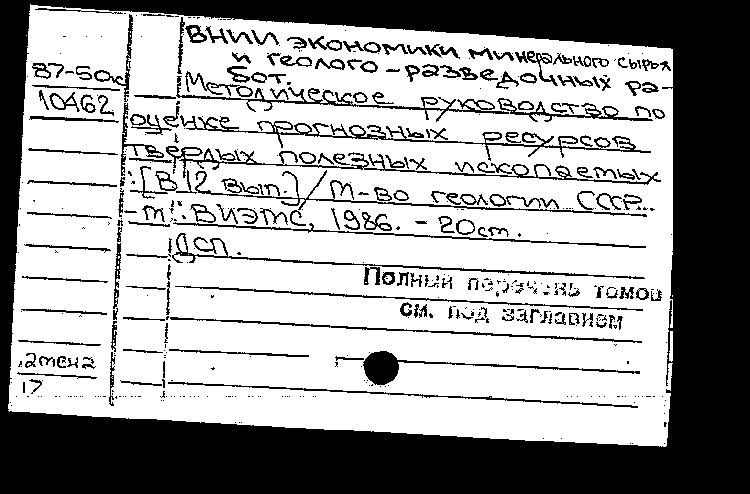 ВНИИ экономики минерального сырья
и геолого-разведочных ра-
бот.
87-50к
10462
Методическое руководство по
оценке прогнозных ресурсов
твердых полезных ископаемых
: [В 12 вып.] / М-во геологии СССР...
- М.: ВИЭМС, 1986. - 20 см.
ДСП.
Полный перечень томов
см. под заглавием
17